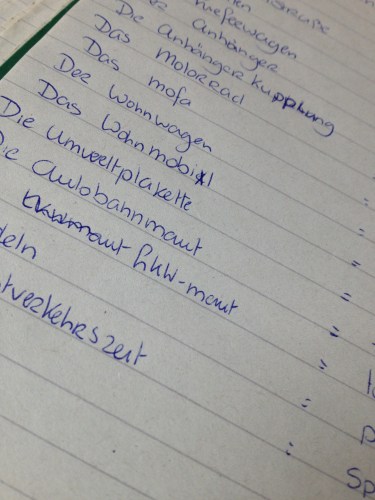 Anhänger
Die Anhängerkupplung
Das Motorrad
Das mofa
Der Wohnwagen
Das Wohnmobil
Die Umweltplakette
Die Autobahnmaut
LKW-maut
deln
tverkehrszeit